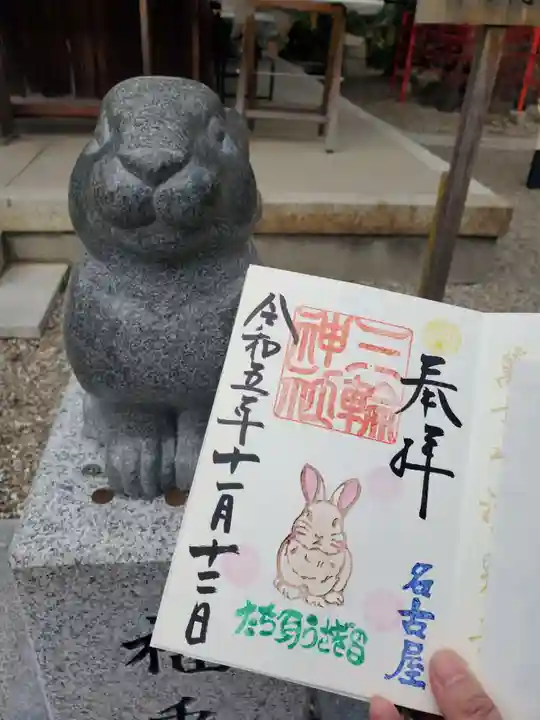 奉拝
名古屋
三輪
神社
たち耳うさぎの日
令和五年十一月十二日